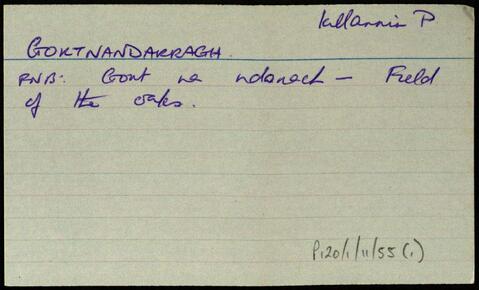 Killannin P
GORTNANDARRAGH.
FNB: Gort na ndarach – Field
of the oaks.
P120/1/11/55(1)